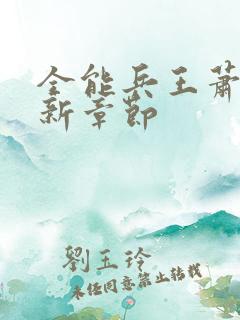 全能兵王萧
新章节
劉玉玲
未经同意禁止转载